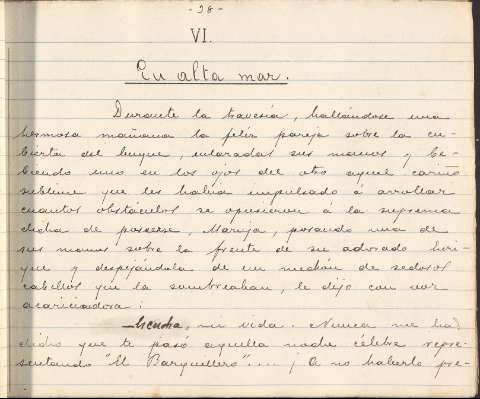 - 28 -
VI.
En alta mar.
Durante la travesía, hallándose una
hermosa mañana la feliz pareja sobre la cu-
bierta del buque, enlazadas sus manos y be-
biendo uno en los ojos del otro aquel cariño
sublime que les había impulsado á arrollar
cuantos obstáculos se opusieron á la suprema
dicha de poseerse, Maruja, posando una de
sus manos sobre la frente de su adorado Enri-
que y despejándola de un mechón de sedosos
cabellos que la sombreaban, le dijo con voz
acariciadora:
—Escucha, mi vida. Nunca me has
dicho que te pasó aquella noche célebre repre-
sentando "El Barquillero".... ¡A no haberlo pre-